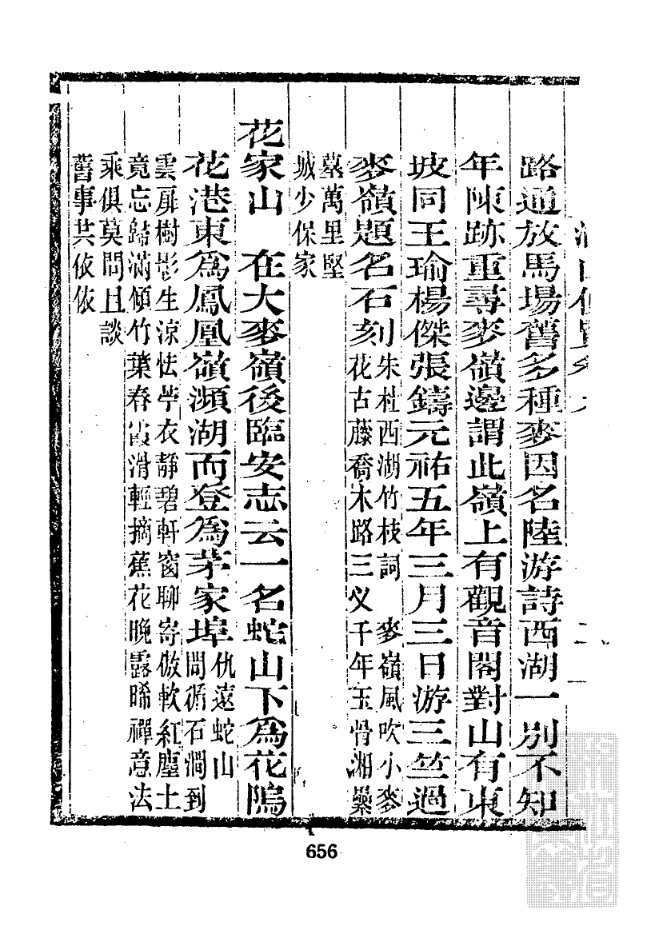 路通放馬場舊多種麥因名陸游詩西湖一別不知
年陳跡重尋麥嶺邊謂此嶺上有觀音閣對山有東
坡同王瑜楊傑張鑄元祐五年三月三日游三竺過
麥嶺題名石刻
朱杜西湖竹枝詞 麥嶺風吹小麥
花古藤喬木路三义千年玉骨湘纍
墓萬里堅
城少保家
花家山 在大麥嶺後臨安志云一名蛇山下為花隖
花港東為鳳凰嶺瀕湖而登為茅家埠
仇遠蛇山
問循石澗到
雲扉樹影生涼怯苧衣靜碧軒窗聊寄傲軟紅塵土
竟忘歸滿傾竹葉春霞滑輕摘蕉花曉露晞禪意法
乘俱莫問且談
舊事共依依
656